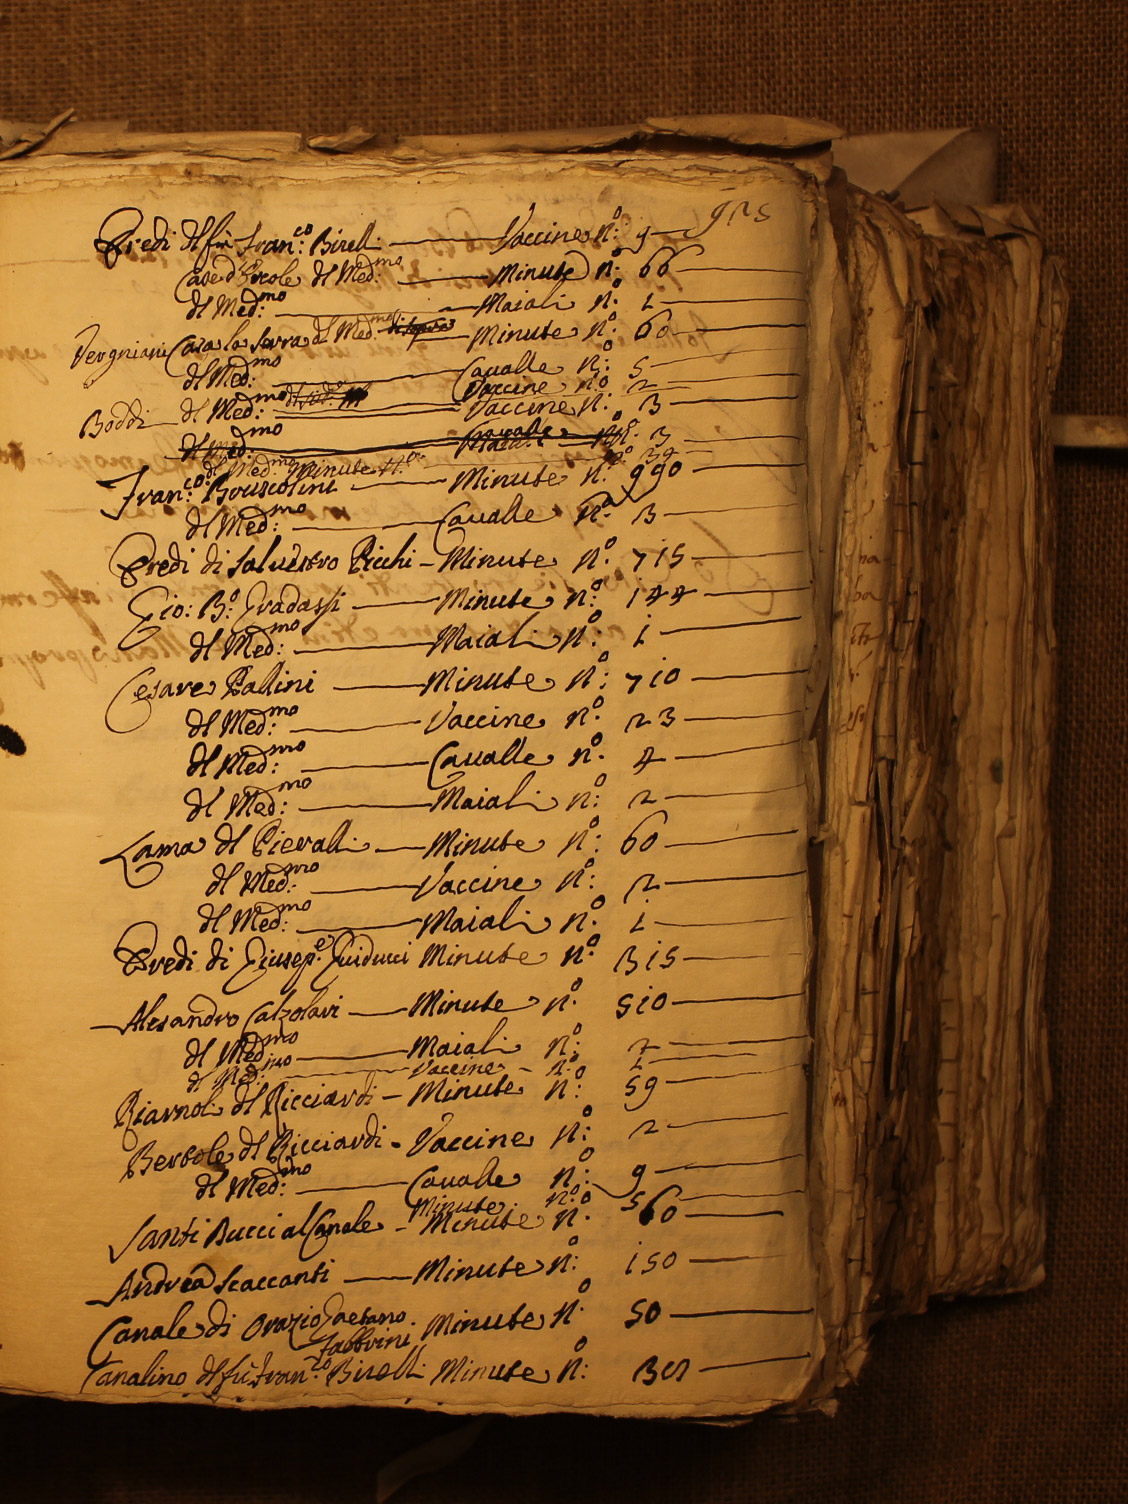 Eredi del fù Fran:co Birelli Vaccine n:o 9
Case d'Ercole del Med:mo Minute n:o 66
del Med:mo Maiali n:o 1
Vergniani Casa la Serra del Med:mo di sopra Minute n:o 60
del Med:mo Cavalle n:o 5
Vaccine n:o 2
Boddi del Med:mo Vaccine n:o 3
del Med:mo Cavalle n:o 3
del Med:mo Minute n:o 39
Fran:co Bruscolini Minute n:o 990
del Med:mo Cavalle n:o 3
Eredi di Salvestro Picchi - Minute n:o 715
Gio: B:o Gradassi Minute n:o 144
del Med:mo Maiali n:o 1
Cesare Pallini Minute n:o 710
del Med:mo Vaccine n:o 23
del Med:mo Cavalle n:o 4
del Med:mo Maiali n:o 2
Lama del Pievalli Minute n:o 60
del Med:mo Vaccine n:o 2
del Med:mo Maiali n:o 1
Eredi di Giusep:e Guiducci Minute n:o 315
Alesandro Calzolari Minute n:o 510
del Med:mo Maiali n:o 2
del Med:mo Vaccine n:o 1
del Ricciardi - Minute n:o 59
del Ricciardi - Vaccine n:o 2
del Med:mo Cavalle n:o 9
Minute n:o 5
Santi Bucci al Canale - Minute n:o 60
Andrea Scaccanti Minute n:o 150
Canale di Orazio Gaetano Minute n:o 50
Fabbrini
Canalino del fù Fran:co Birelli Minute n:o